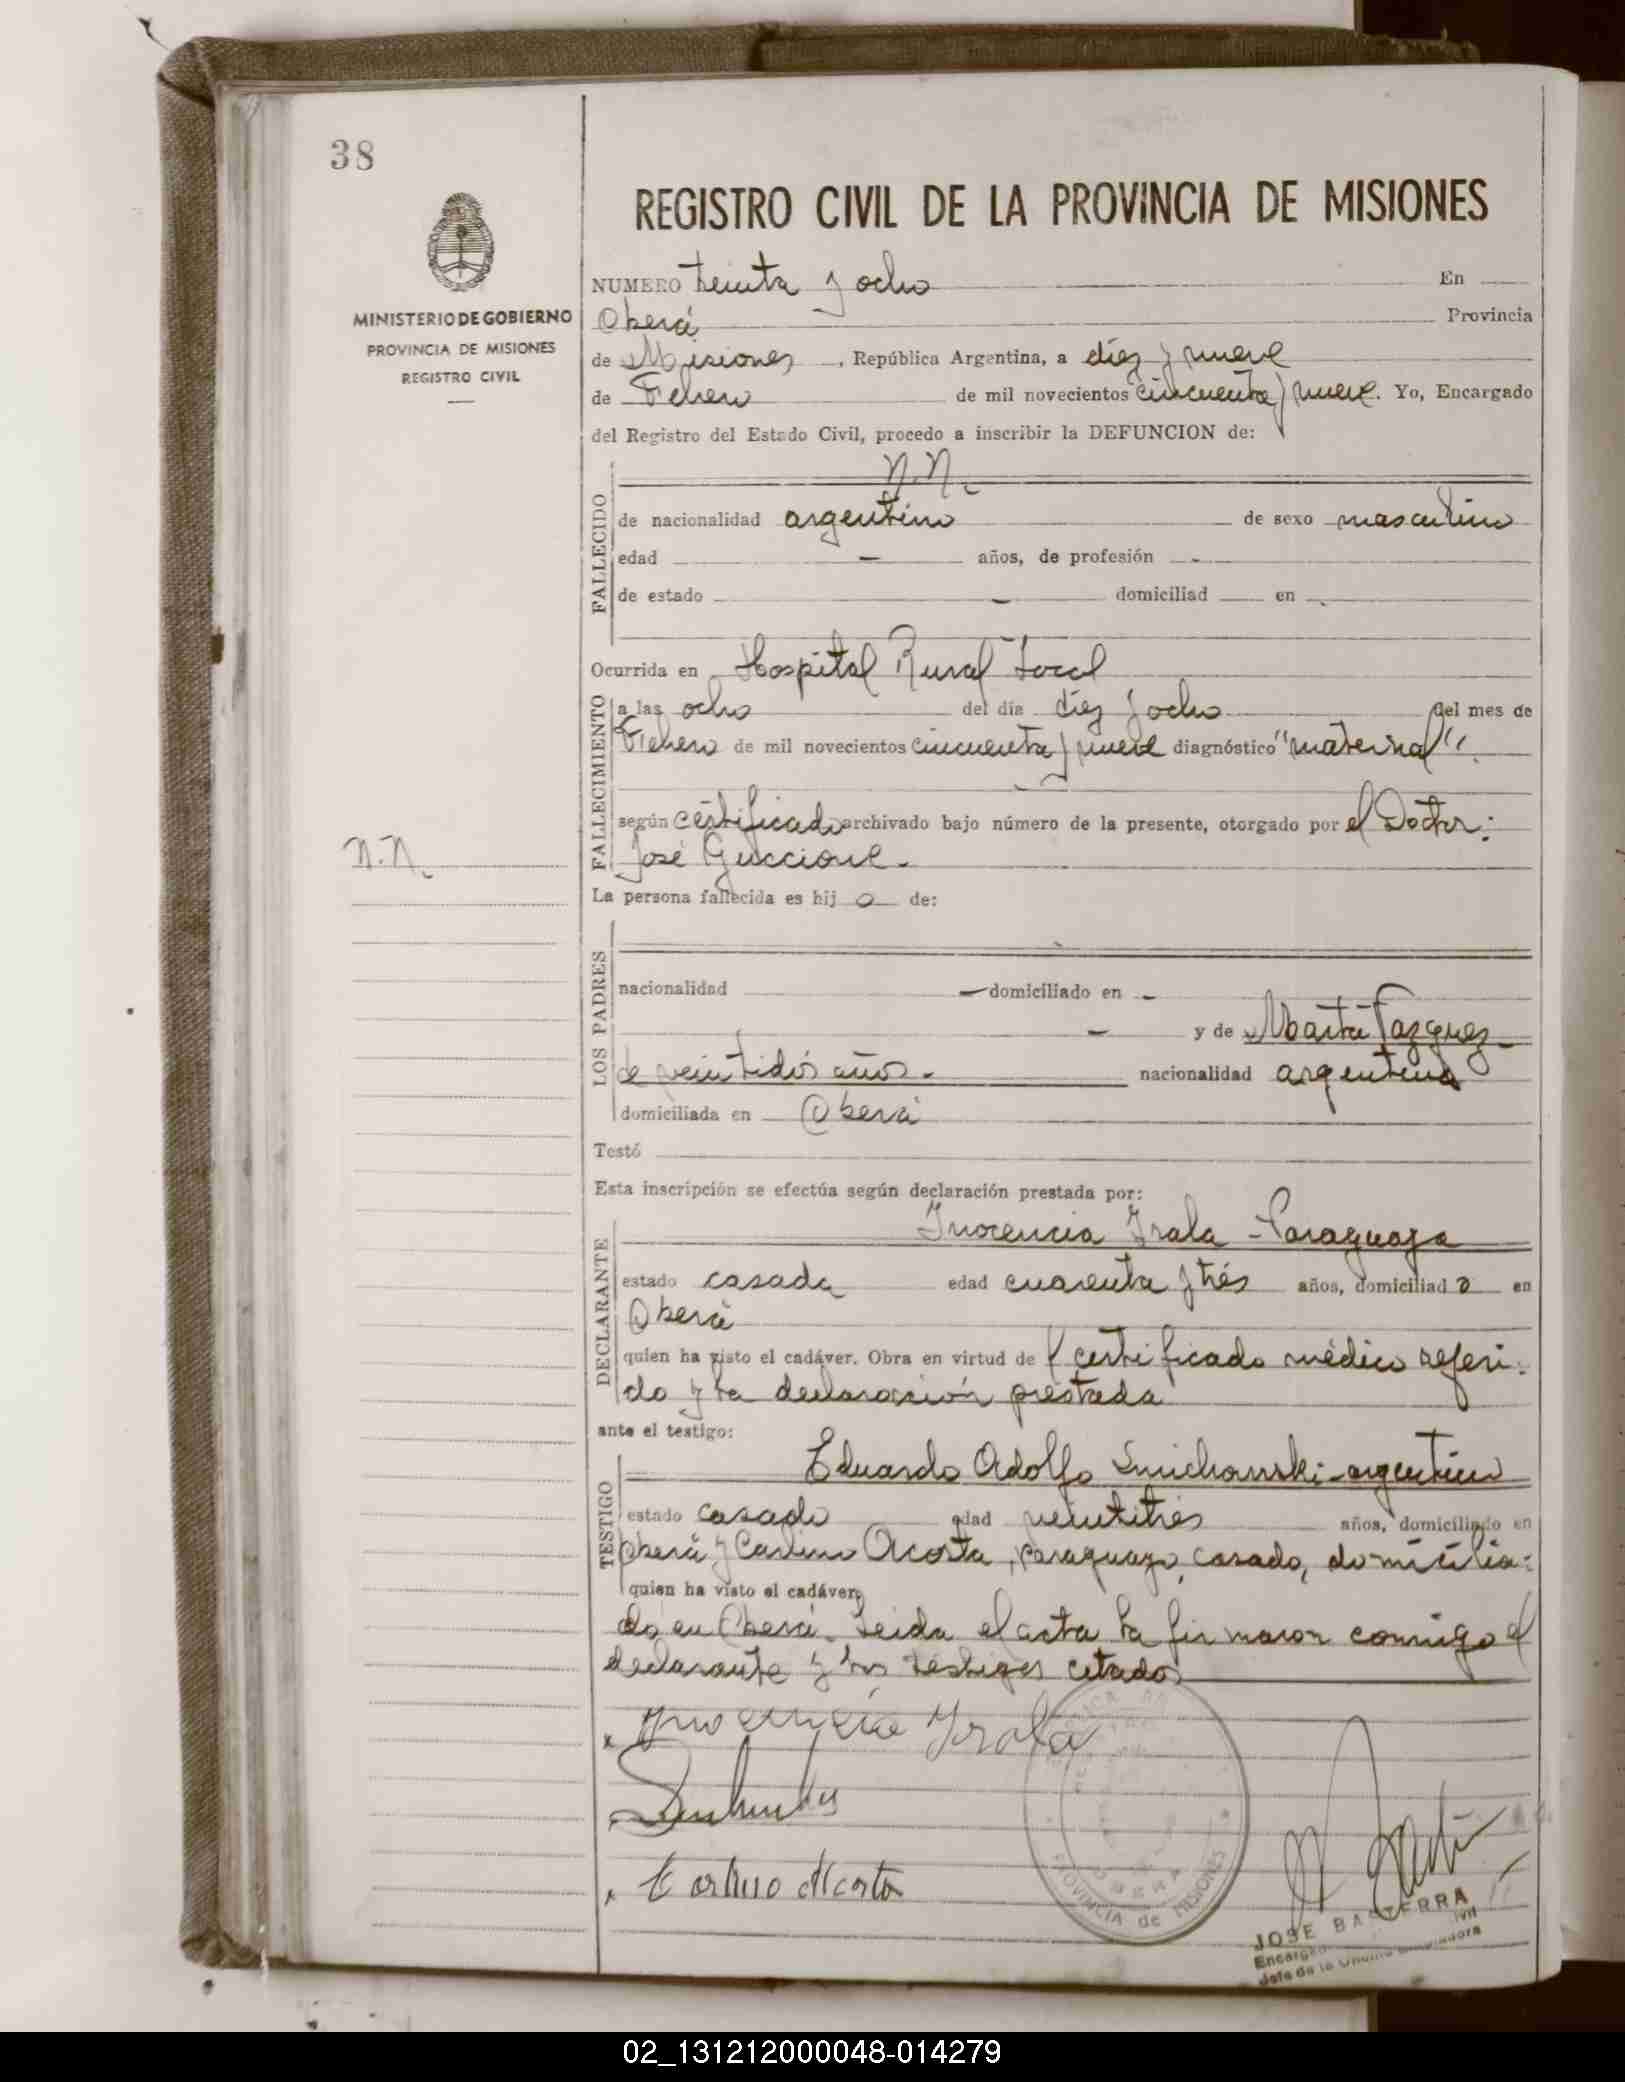 38
MINISTERIO DE GOBIERNO
PROVINCIA DE MISIONES
REGISTRO CIVIL
REGISTRO CIVIL DE LA PROVINCIA DE MISIONES
NUMERO treinta y ocho En
Oberá Provincia
de Misiones, República Argentina, a diez y nueve
de Febrero de mil novecientos cincuenta y nueve. Yo, Encargado
del Registro del Estado Civil, procedo a inscribir la DEFUNCION de:
N.N.
FALLECIDO
de nacionalidad argentino de sexo masculino
edad - años, de profesión -
de estado - domiciliad en -
Ocurrida en Hospital Rural Local
FALLECIMIENTO
a las ocho del día diez y ocho del mes de
Febrero de mil novecientos cincuenta y nueve diagnóstico "maternal".
según certificado archivado bajo número de la presente, otorgado por el Doctor:
José Guccione.
N.N.
La persona fallecida es hij o de:
LOS PADRES
nacionalidad - domiciliado en -
- y de Marta Vazquez
de veintidós años.- nacionalidad argentina
domiciliada en Oberá
Testó
Esta inscripción se efectúa según declaración prestada por:
DECLARANTE
Inocencia Irala - Paraguaya
estado casada edad cuarenta y trés años, domiciliad a en
Oberá
quien ha visto el cadáver. Obra en virtud de certificado médico referi-
do y la declaración prestada
ante el testigo:
TESTIGO
Eduardo Adolfo - argentino
estado casado edad veintitrés años, domiciliado en
Oberá y Carlino Acosta, paraguayo, casado, domicilia-
quien ha visto el cadáver
do en Oberá. Leida el acta la firmaron conmigo el
declarante y los testigos citados
Inocencia Irala
Carlino Acosta
PROVINCIA de MISIONES
JOSE BASTERRA
Jefe de la Oficina
02_131212000048-014279